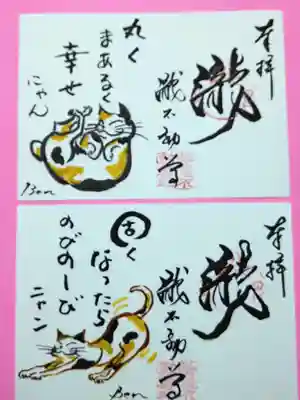 奉拝
瀧
不動尊
丸く
まあるく
幸せ
にゃん
Ben
奉拝
瀧
不動尊
固く
なったら
のびのーび
ニャン
Ben